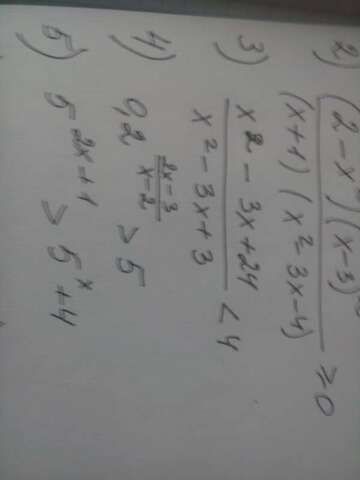 2) (2-x²)(x-3)²
(x+1)(x²-3x-4) ≥0
3) x²-3x+24
x²-3x+3 <4
4) 0,2^((2x-3)/(x-2)) >5
5) 5^(2x+1) > 5^x+4